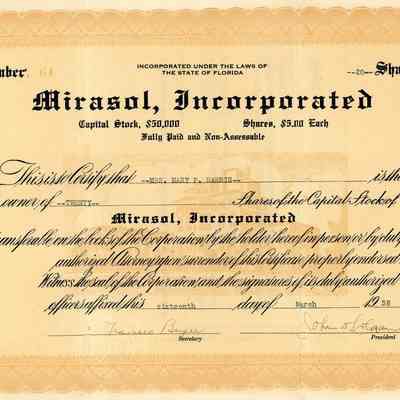 mber 61
INCORPORATED UNDER THE LAWS OF
THE STATE OF FLORIDA
--20-- Sha
Mirasol, Incorporated
Capital Stock, $50,000 Shares, $5.00 Each
Fully Paid and Non-Assessable
This is to Certify that --MRS. MARY P. HARRIS-- is the
owner of --TWENTY-- Shares of the Capital Stock of
Mirasol, Incorporated
transferable on the books of the Corporation by the holder hereof in person or by duly
authorized Attorney upon surrender of this Certificate properly endorsed
Witness the seal of the Corporation and the signatures of its duly authorized
officers affixed this sixteenth day of March 1938
Frances
Secretary
John
President